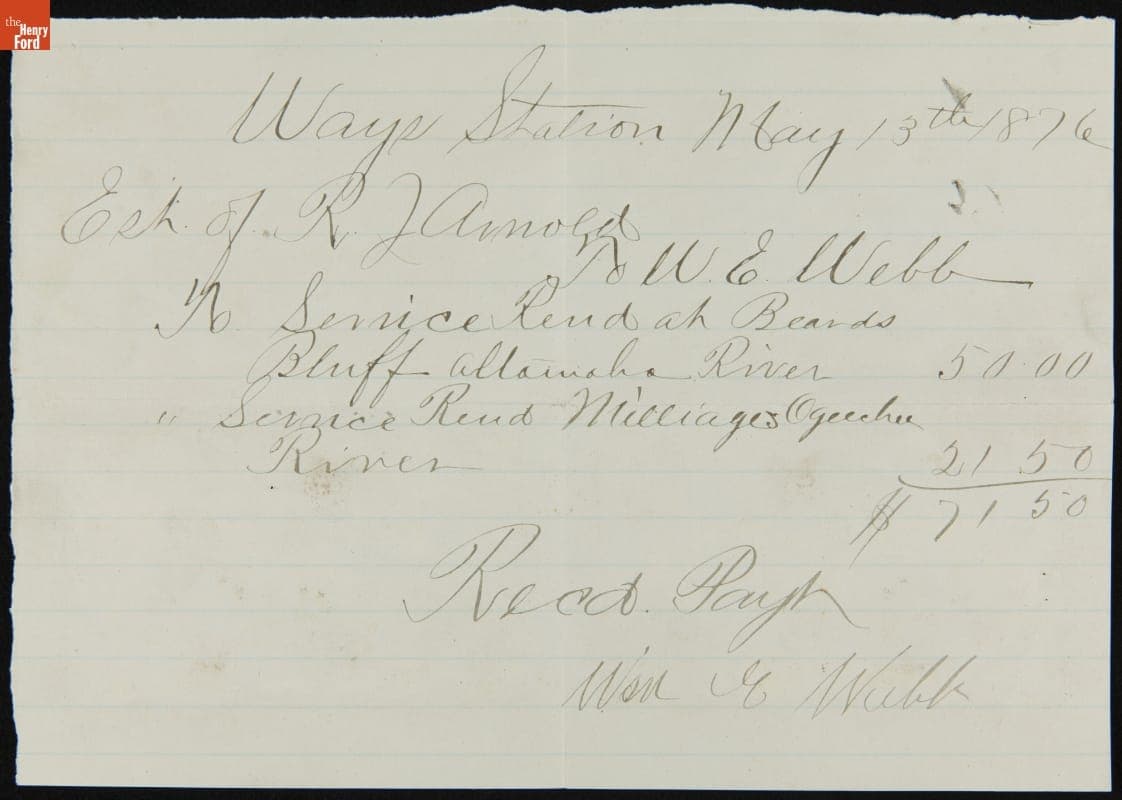 the
Henry
Ford
Ways Station May 13th 1876
Est. of R. J Arnold
To W. E. Webb
To Service Rend at Beards
Bluff Altamaha River 50 00
" Service Rend Milliages Ogeechee
River 21 50
$ 71 50
Recd. Payt
Wm E Webb